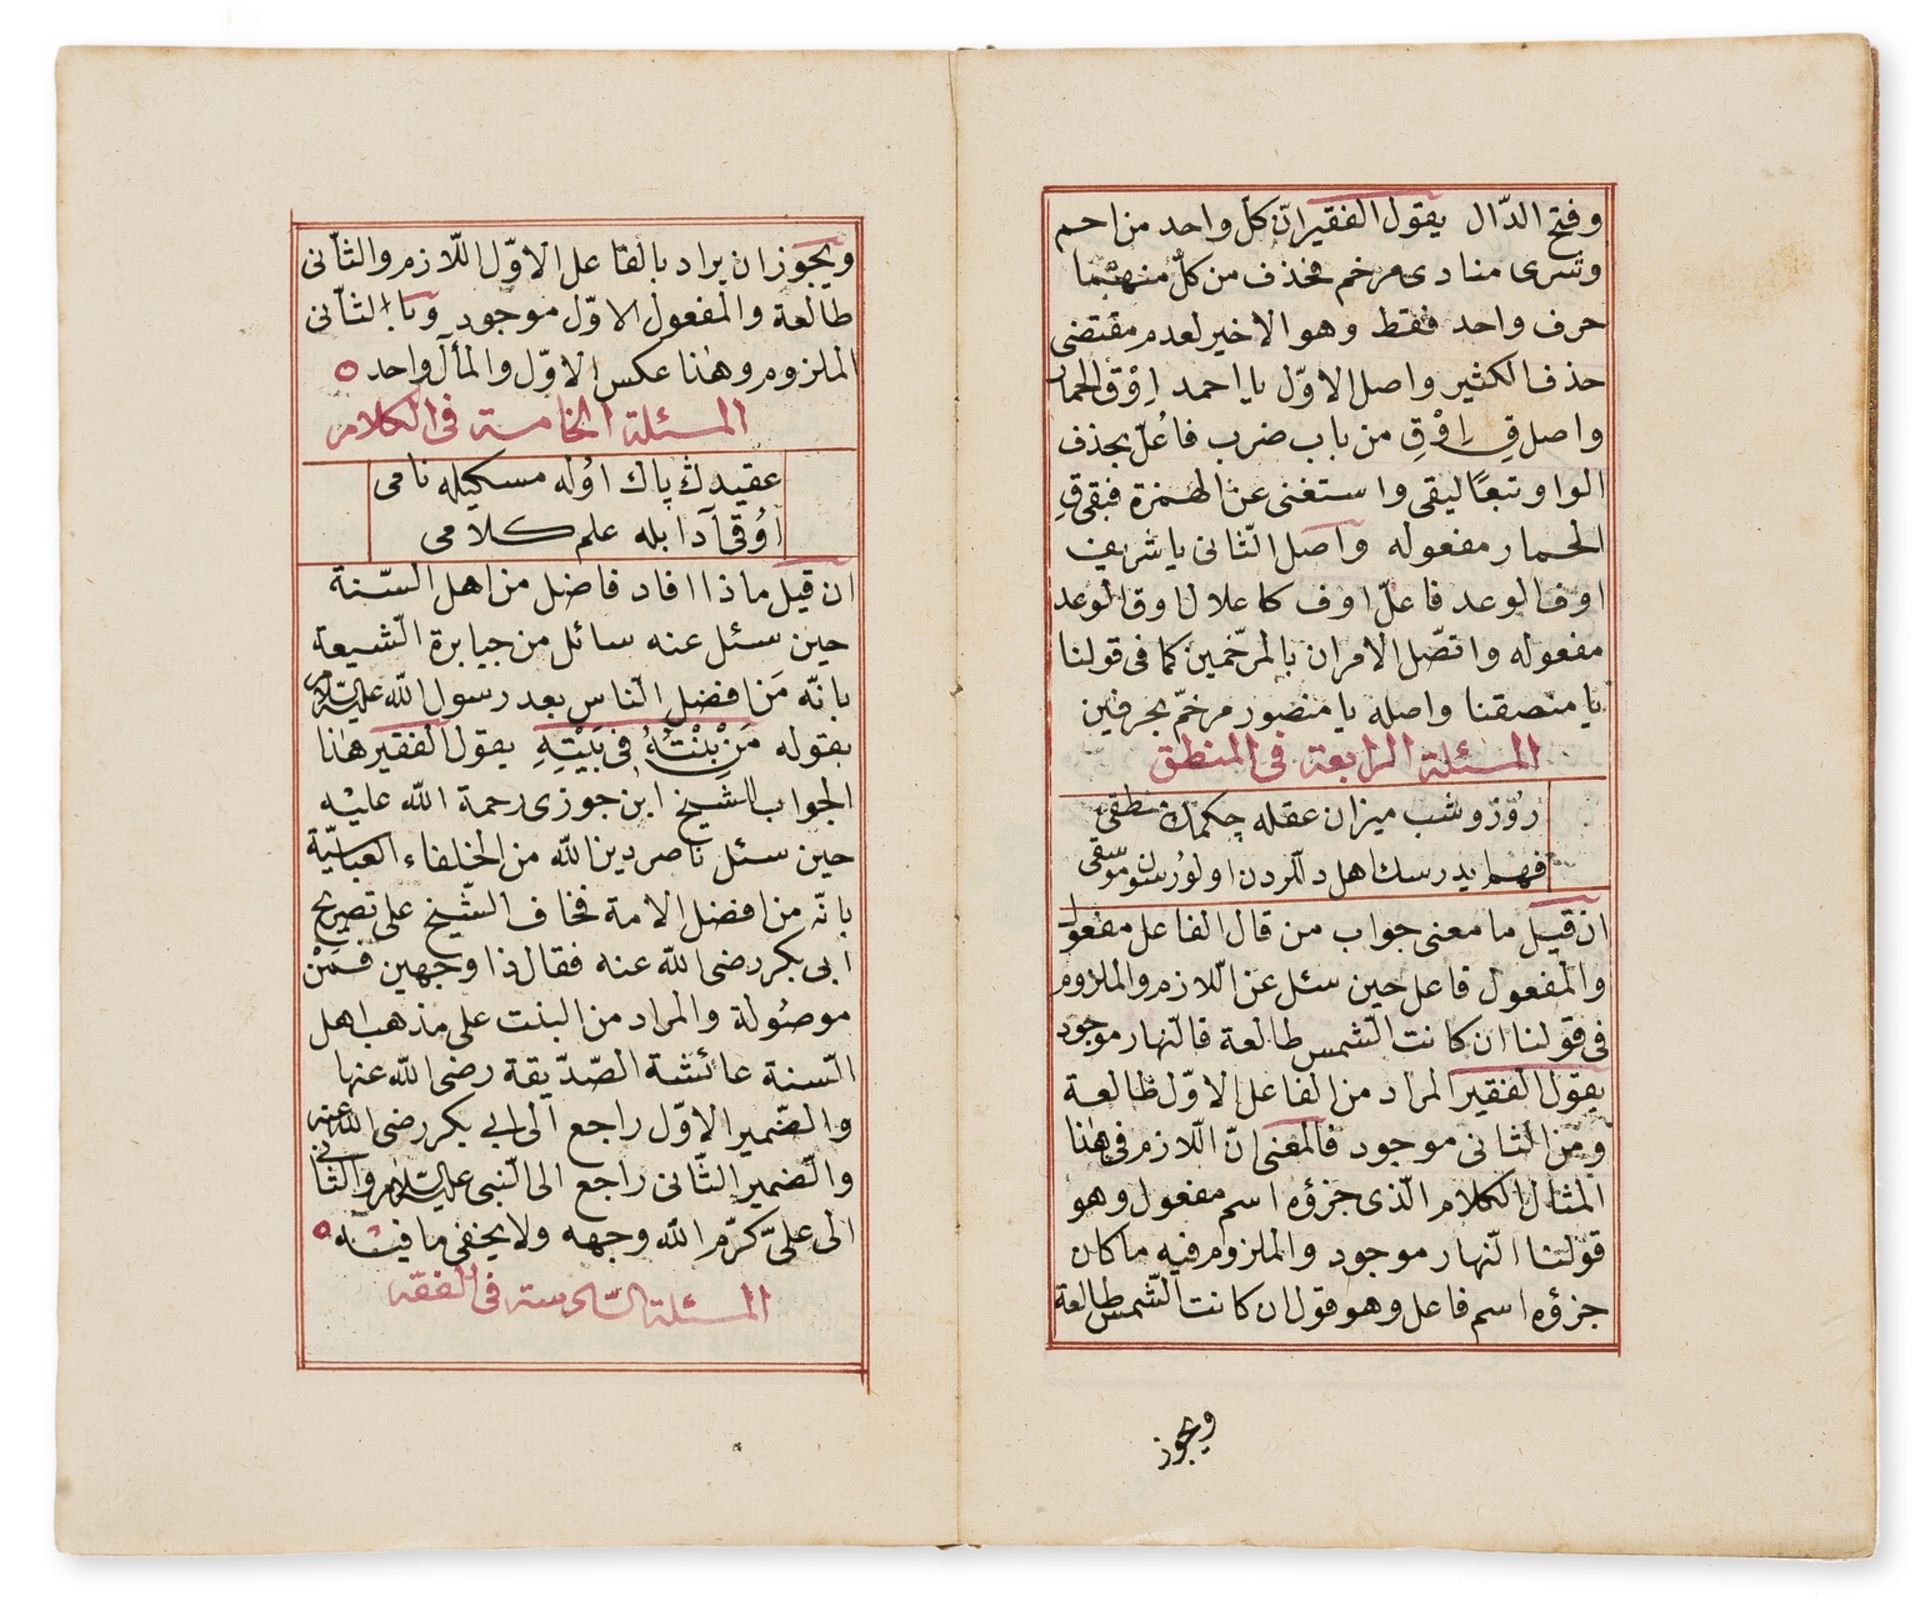 وفتح الدّال يقول الفقير انّ كلّ واحد من احم
وشرى منادى مرخم فحذف من كلّ منهما
حرف واحد فقط وهو الاخير لعدم مقتضى
حذف الكثير واصل الاوّل يا احمد اِوْقِ الحمار
واصل قِ اِوْقِ من باب ضرب فاُعلّ بحذف
الواو تبعًا ليقى واستغنى عن الهمزة فبقى قِ
الحمار مفعوله واصل الثّانى يا شريف
اوف الوعد فاعلّ اوف كاعلال اوق الوعد
مفعوله واتصّل الامران بالمرخّمين كما فى قولنا
يا منصقنا واصله يا منصور مرخّم بحرفين
المسئلة الرابعة فى المنطق
رُوْز وشب ميزان عقله چكمك منطقى
فهم ايدرسك اهل دللردن اولورسن موسقى
ان قيل ما معنى جواب من قال الفاعل مفعول
والمفعول فاعل حين سئل عن اللّازم والملزوم
فى قولنا ان كانت الشّمس طالعة فالنّهار موجود
يقول الفقير المراد من الفاعل الاوّل طالعة
ومن الثانى موجود فالمعنى انّ اللّازم فى هٰذا
المثال الكلام الّذى جزؤه اسم مفعول وهو
قولنا النّهار موجود والملزوم فيه ما كان
جزؤه اسم فاعل وهو قول ان كانت الشّمس طالعة
ويجوز
ويجوز ان يراد بالفاعل الاوّل اللّازم والثّانى
طالعة والمفعول الاوّل موجود وبالثّانى
الملزوم وهٰذا عكس الاوّل والمأل واحد
المسئلة الخامسة فى الكلام
عقيدڭ پاك اوُله مسكيله نامى
اوُقى آدابله علم كلامى
ان قيل ماذا افاد فاضل من اهل السّنة
حين سئل عنه سائل من جبابرة الشّيعة
بانّه مَن افضل النّاس بعد رسول اللّه عليه السّلام
بقوله مَنْ بِنْتُهُ فى بَيْتِهِ يقول الفقير هٰذا
الجواب للشيخ ابن جوزى رحمة اللّه عليه
حين سئل ناصر دين اللّه من الخلفاء العبّاسيّة
بانّه من افضل الامة فخاف الشّيخ على تصريح
ابى بكر رضى اللّه عنه فقال ذا وجهين فمَنْ
موصُولة والمراد من البنت على مذهب اهل
السّنة عائشة الصّدّيقة رضى اللّه عنها
والضّمير الاوّل راجع الى ابي بكر رضى اللّه عنه
والضّمير الثّانى راجع الى النّبى عليه السّلام والثّانى
الى علىّ كرّم اللّه وجهه ولا يخفى ما فيه
المسئلة السّادسة فى الفقه